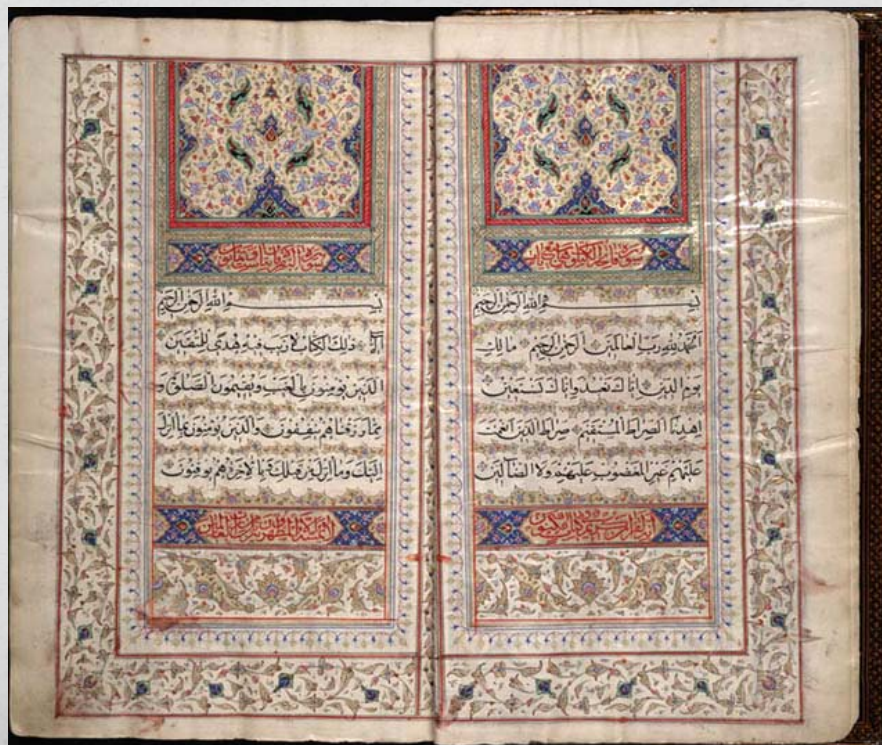 سورة فاتحة الكتاب
بسم الله الرحمن الرحيم
الحمد لله رب العالمين الرحمن الرحيم مالك
يوم الدين اياك نعبد واياك نستعين
اهدنا الصراط المستقيم صراط الذين انعمت
عليهم غير المغضوب عليهم ولا الضالين
انه لقرآن كريم في كتاب مكنون
سورة البقرة
بسم الله الرحمن الرحيم
الم ذلك الكتاب لا ريب فيه هدى للمتقين
الذين يؤمنون بالغيب ويقيمون الصلوة و
مما رزقناهم ينفقون والذين يؤمنون بما انزل
اليك وما انزل من قبلك و بالاخرة هم يوقنون
لا يمسه الا المطهرون تنزيل من رب العالمين